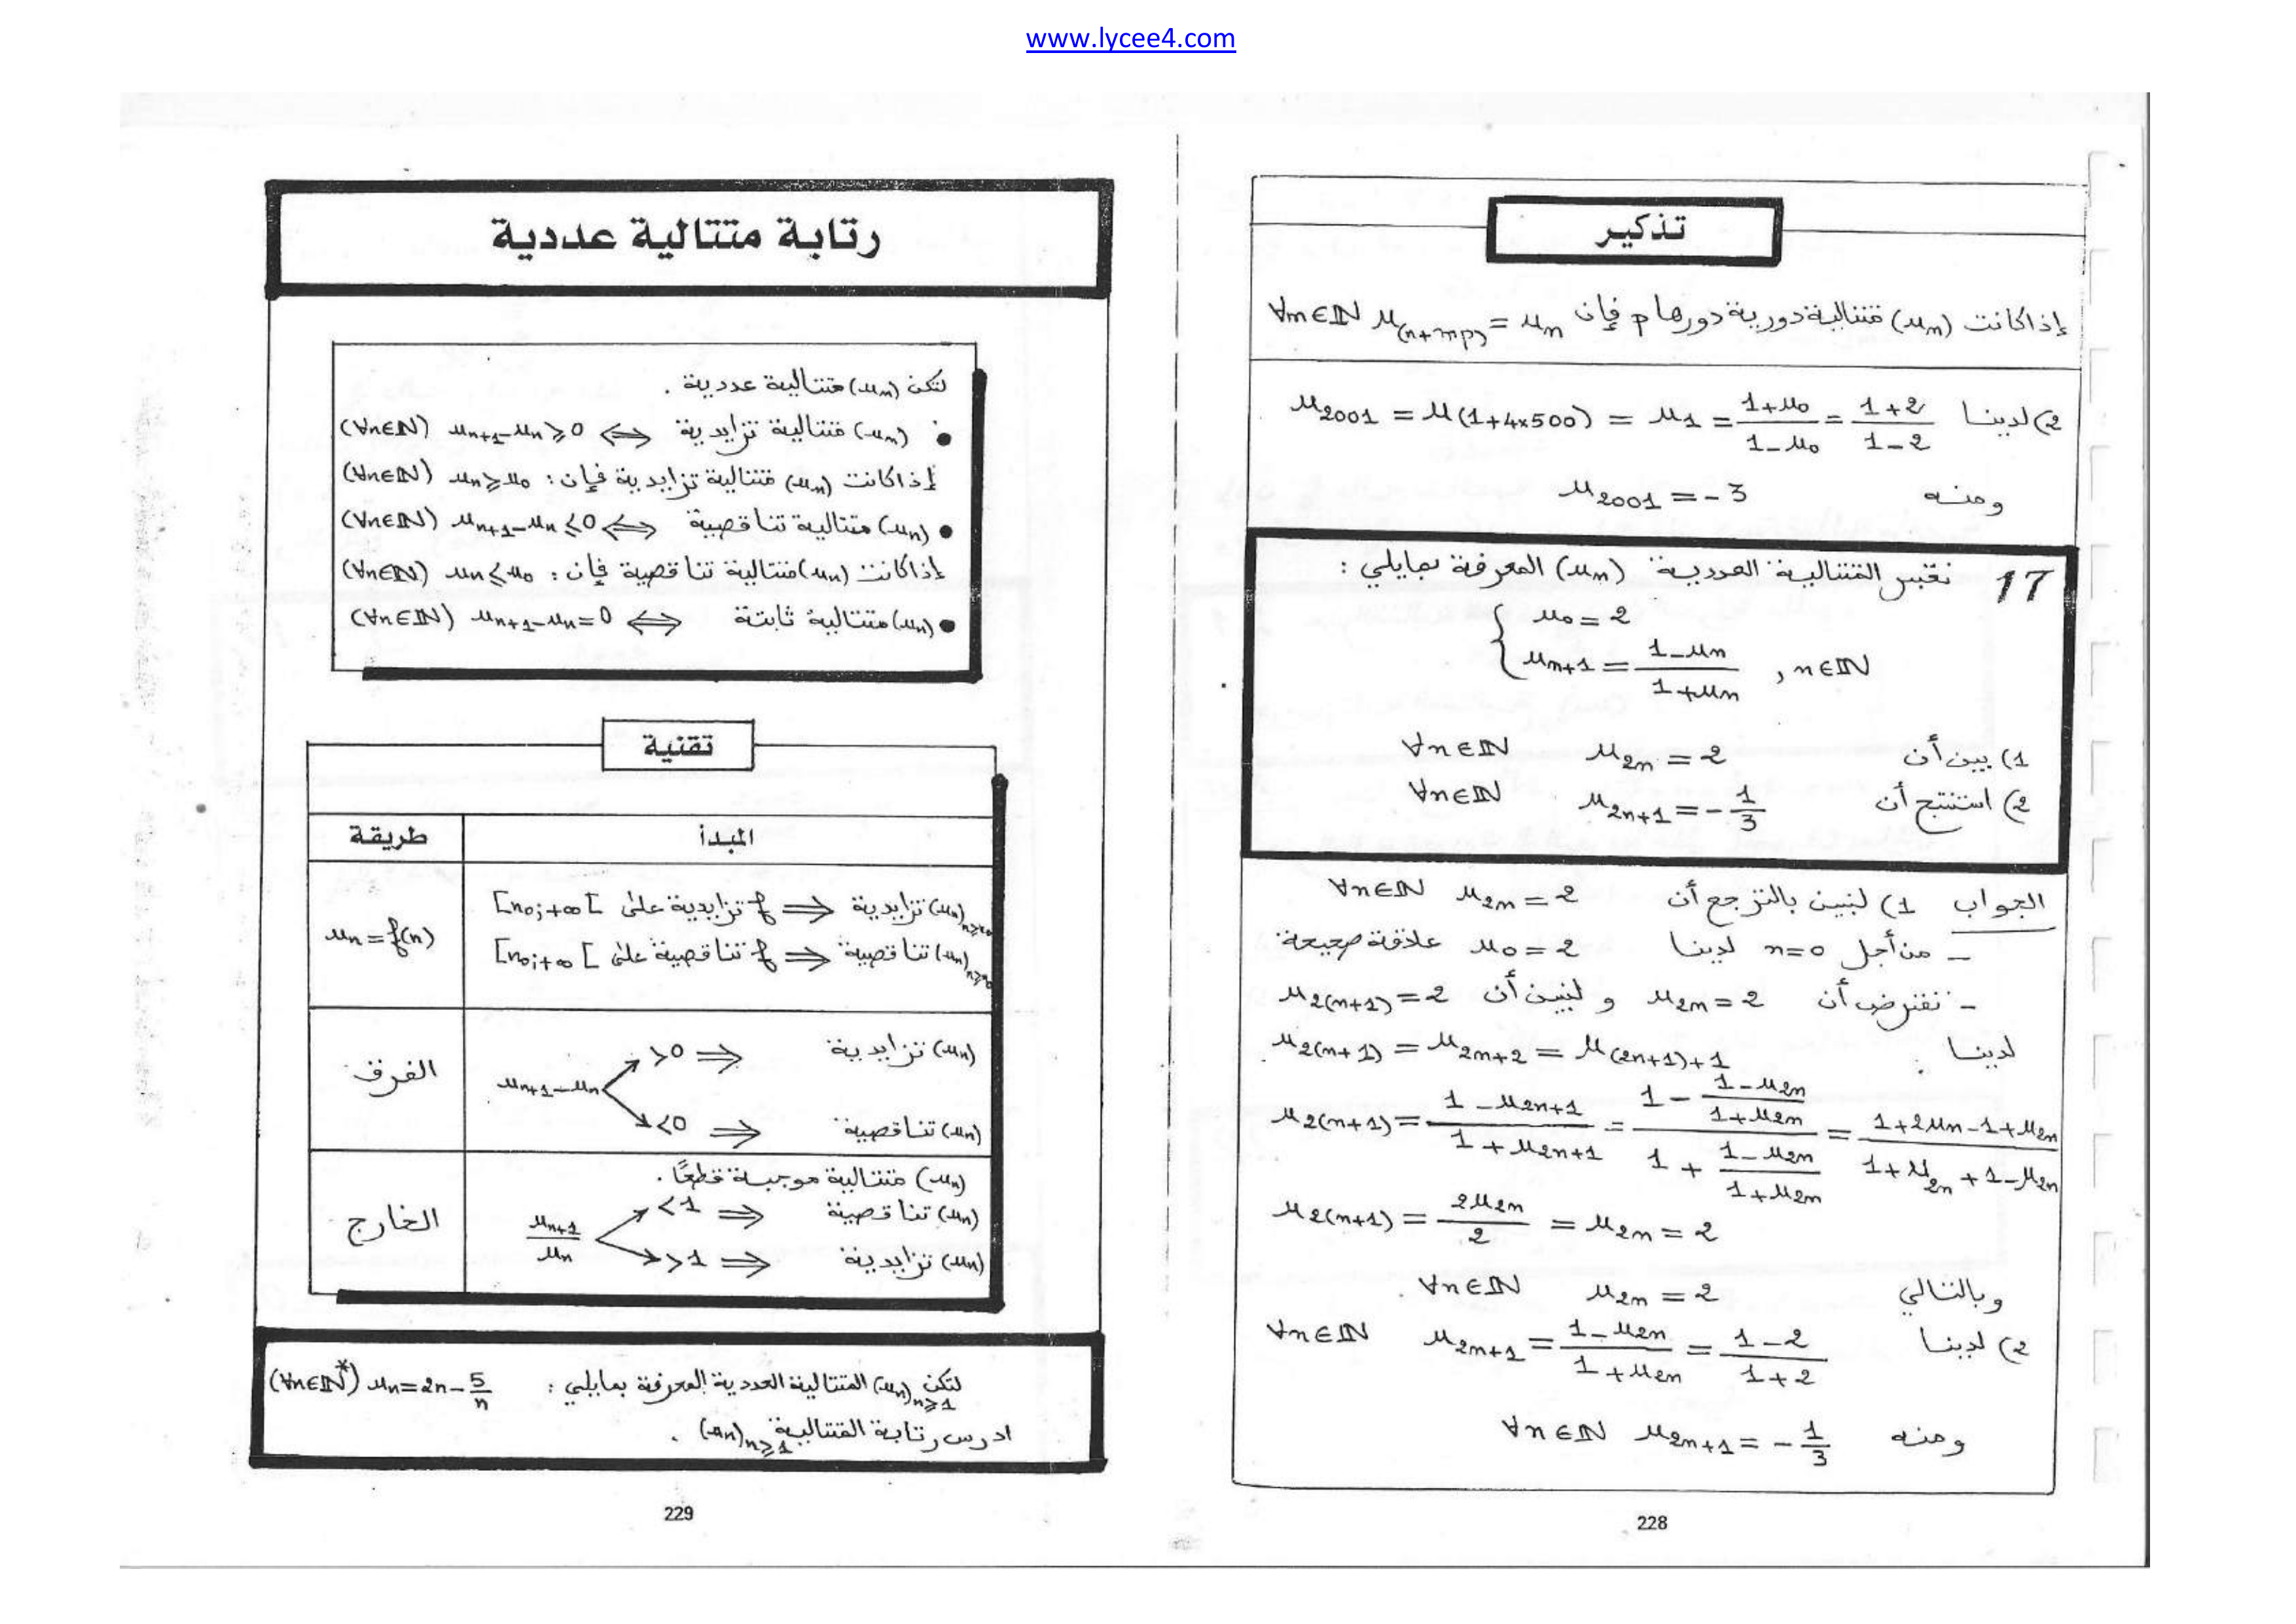 www.lycee4.com
تذكير
إذا كانت (u_n) متتالية دورية دورها p فإن u_(n+mp) = u_n ∀m∈ℕ
2) لدينا u_2001 = u(1+4×500) = u_1 = (1+u_0)/(1-u_0) = (1+2)/(1-2)
ومنه u_2001 = -3
17 نعتبر المتتالية العددية (u_n) المعرفة بمايلي :
u_0 = 2
u_n+1 = (1-u_n)/(1+u_n) , n∈ℕ
1) بين أن u_2n = 2 ∀n∈ℕ
2) استنتج أن u_2n+1 = -1/3 ∀n∈ℕ
الجواب 1) لنبين بالترجع أن u_2n = 2 ∀n∈ℕ
- من أجل n=0 لدينا u_0 = 2 علاقة صحيحة
- نفترض أن u_2n = 2 و لنبين أن u_2(n+1) = 2
لدينا u_2(n+1) = u_2n+2 = u_(2n+1)+1
u_2(n+1) = (1-u_2n+1)/(1+u_2n+1) = (1-(1-u_2n)/(1+u_2n))/(1+(1-u_2n)/(1+u_2n)) = (1+2u_n-1+u_2n)/(1+u_2n+1-u_2n)
u_2(n+1) = 2u_2n/2 = u_2n = 2
وبالتالي u_2n = 2 ∀n∈ℕ .
2) لدينا u_2n+1 = (1-u_2n)/(1+u_2n) = (1-2)/(1+2) ∀n∈ℕ
ومنه u_2n+1 = -1/3 ∀n∈ℕ
228
رتابة متتالية عددية
لتكن (u_n) متتالية عددية .
• (u_n) متتالية تزايدية ⟺ u_n+1-u_n ≥ 0 (∀n∈ℕ)
إذا كانت (u_n) متتالية تزايدية فإن : u_n ≥ u_0 (∀n∈ℕ)
• (u_n) متتالية تناقصية ⟺ u_n+1-u_n ≤ 0 (∀n∈ℕ)
إذا كانت (u_n) متتالية تناقصية فإن : u_n ≤ u_0 (∀n∈ℕ)
• (u_n) متتالية ثابتة ⟺ u_n+1-u_n = 0 (∀n∈ℕ)
تقنية
المبدأ طريقة
(u_n)_n≥n_0 تزايدية ⟸ f تزايدية على [n_0;+∞[
u_n = f(n)
(u_n)_n≥n_0 تناقصية ⟸ f تناقصية على [n_0;+∞[
(u_n) تزايدية ⟹ >0
u_n+1-u_n الفرق
(u_n) تناقصية ⟹ <0
(u_n) متتالية موجبة قطعًا .
(u_n) تناقصية ⟹ <1
u_n+1/u_n الخارج
(u_n) تزايدية ⟹ >1
لتكن (u_n)_n≥1 المتتالية العددية المعرفة بمايلي : u_n = 2n - 5/n (∀n∈ℕ*)
ادرس رتابة المتتالية (u_n)_n≥1 .
229